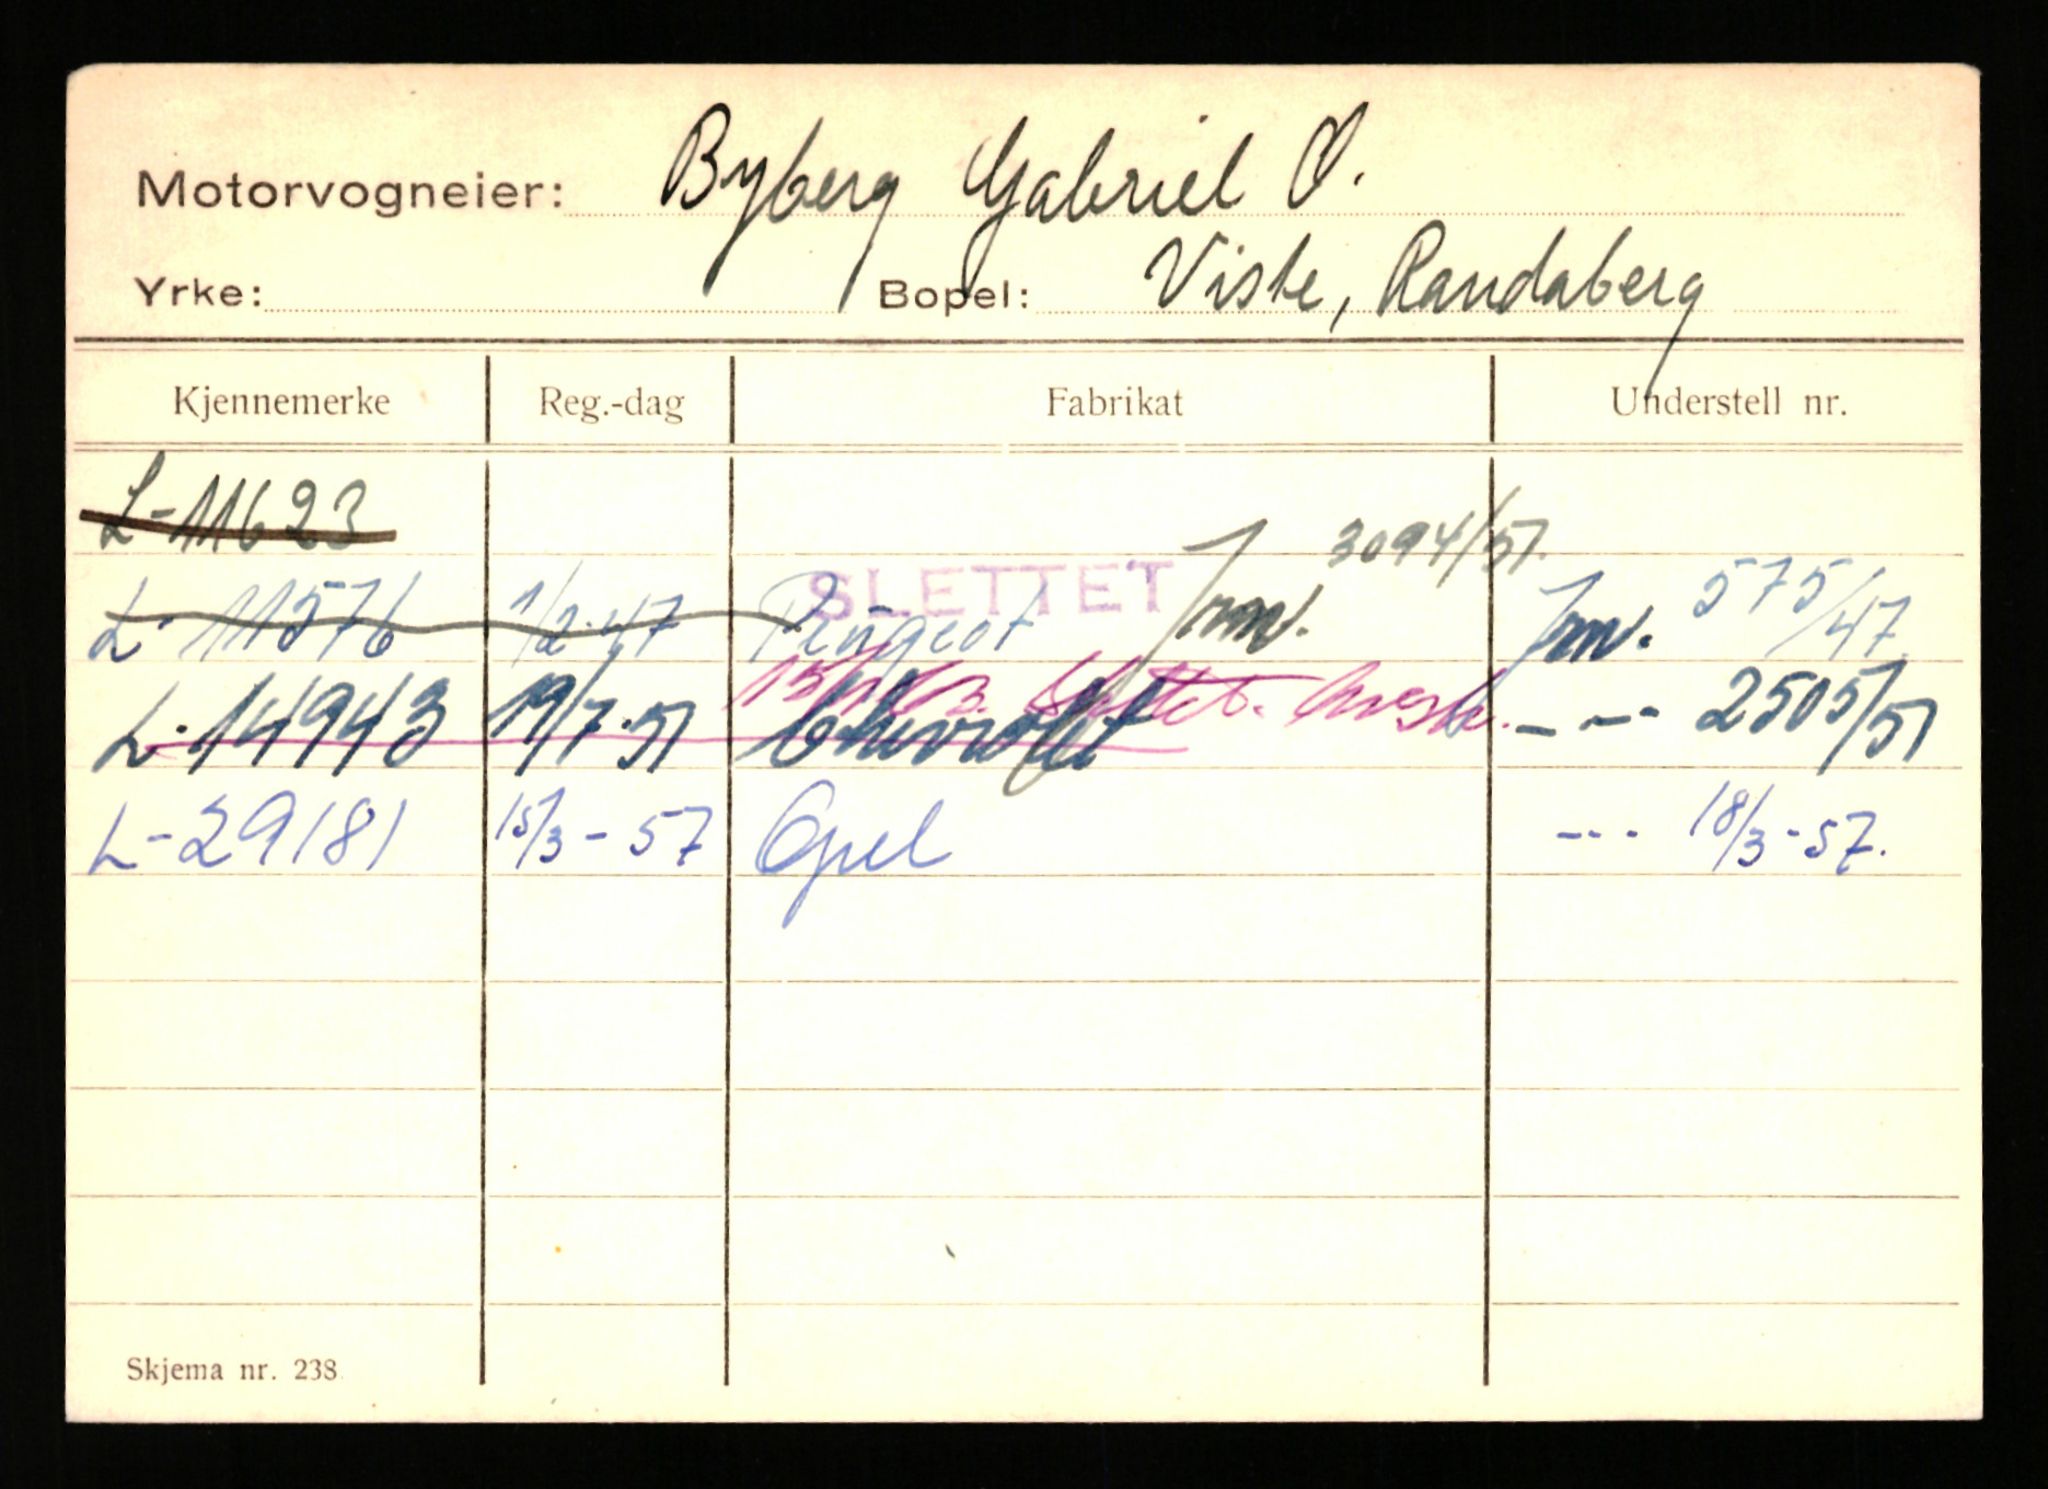 Motorvogneier: Byberg Gabriel O.
Yrke: Bopel: Viste, Randaberg
Kjennemerke Reg.-dag Fabrikat Understell nr.
L-11623
3094/51.
L-11576 1/2-47 Peugeot SLETTET Jnr. Jnr. 575/47
Slettet.
L-14943 19/7-51 Chevrolet - -- 2505/51
L-29181 15/3-57 Opel --- 18/3-57.
Skjema nr. 238